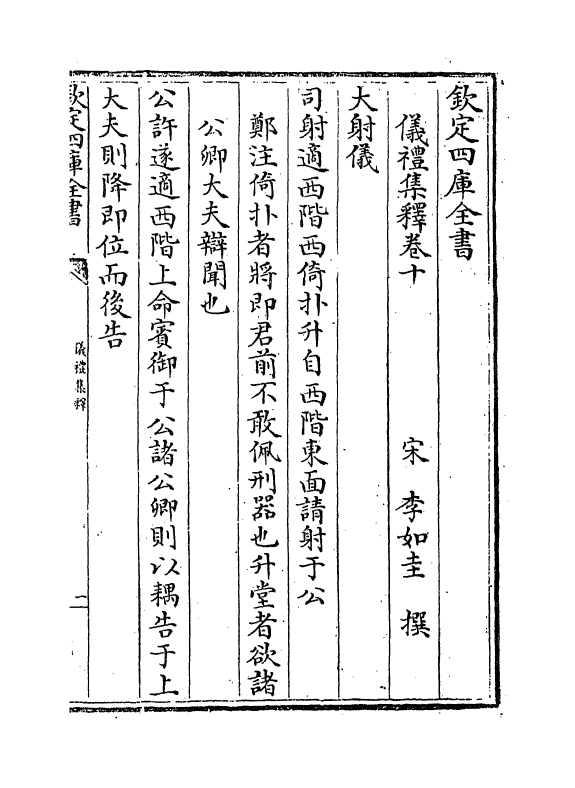 欽定四庫全書
儀禮集釋卷十
宋 李如圭 撰
大射儀
司射適西階西倚扑升自西階東面請射于公
鄭注倚扑者將即君前不敢佩刑器也升堂者欲諸
公卿大夫辯聞也
公許遂適西階上命賓御于公諸公卿則以耦告于上
大夫則降即位而後告
欽定四庫全書
儀禮集釋
二